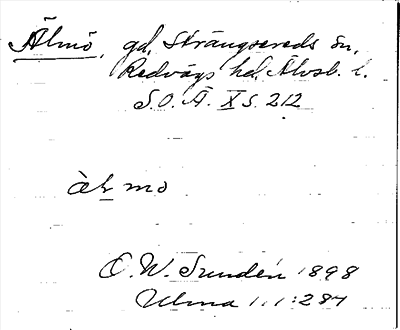 Älmö, gd, Strängsereds sn,
Redvägs hd, Älvsb. l.
S.O.Ä. X s. 212
mo
O. W. Sundén 1898
Ulma 1.1:284